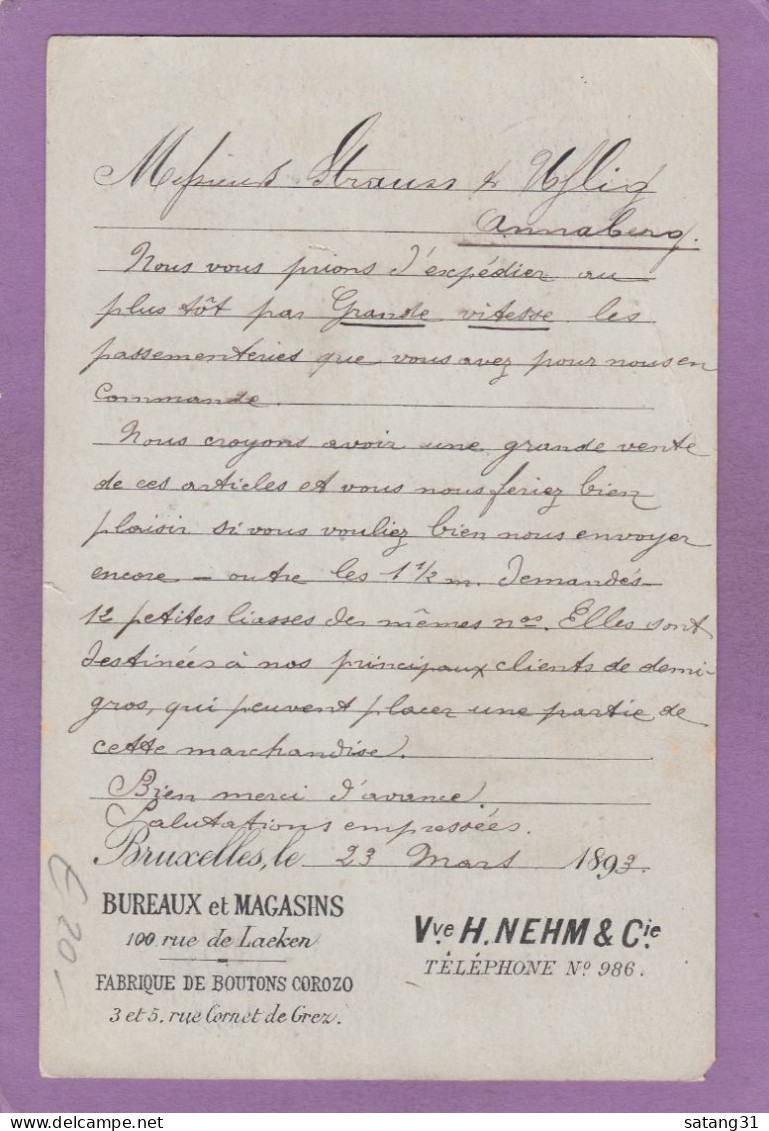 Messieurs Strauss & Uhlig
Annaberg.
Nous vous prions d'expédier au
plus tôt par Grande vitesse les
passementeries que vous avez pour nous en
commande.
Nous croyons avoir une grande vente
de ces articles et vous nous feriez bien
plaisir si vous vouliez bien nous envoyer
encore – outre les 1 1/2 m. demandés –
12 petites liasses des mêmes nos. Elles sont
destinées à nos principaux clients de demi-
gros, qui peuvent placer une partie de
cette marchandise.
Bien merci d'avance.
Salutations empressées.
Bruxelles, le 23 Mars 1893.
BUREAUX et MAGASINS
100 rue de Laeken
FABRIQUE DE BOUTONS COROZO
3 et 5, rue Cornet de Grez.
Vve H. NEHM & Cie
TÉLÉPHONE No 986.
€ 20.-
satang31